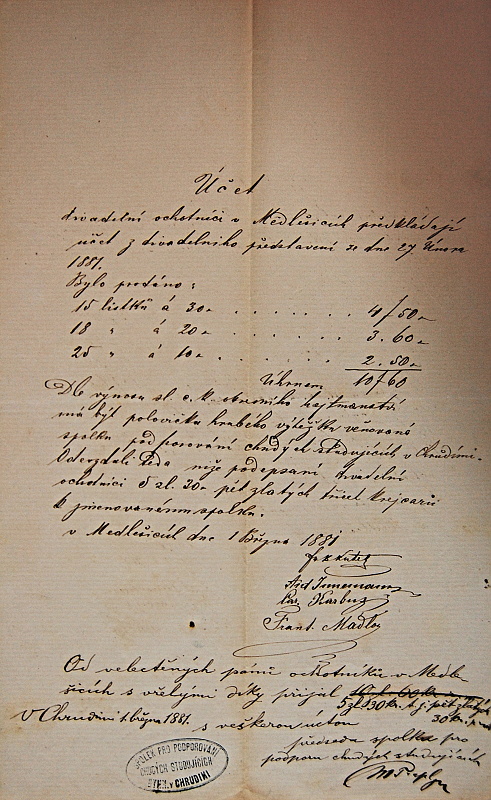 Účet
divadelní ochotníci v Medlešicích předkládají
účet z divadelního představení ze dne 27. Února
1881.
Bylo prodáno:
15 lístků á 30 . . . . . . . 4/50
18 " á 20 . . . . . . . 3.60
25 " á 10 . . . . . . . 2.50
Úhrnem 10/60
Dle výnosu sl. c. k. okresního hejtmanství
má být polovička hrubého výtěžku věnována
spolku podporování chudých studujících v Chrudimi.
Odevzdali teda níže podepsaní divadelní
ochotníci 5 zl. 30 pět zlatých třicet krejcarů
k jmenovanému spolku.
v Medlešicích dne 1 Března 1881
Karbus
Frant. Madlo
Od velectěných pánů ochotníků v Medle-
šicích s vřelými díky přijal
5 zl. 30 kr. t. j. pět zlat.
30 kr.
V Chrudimi 1. března 1881. s veškerou úctou
předseda spolku pro
podporu chudých studujících
SPOLEK PRO PODPOROVÁNÍ
CHUDÝCH STUDUJÍCÍCH
V CHRUDIMI